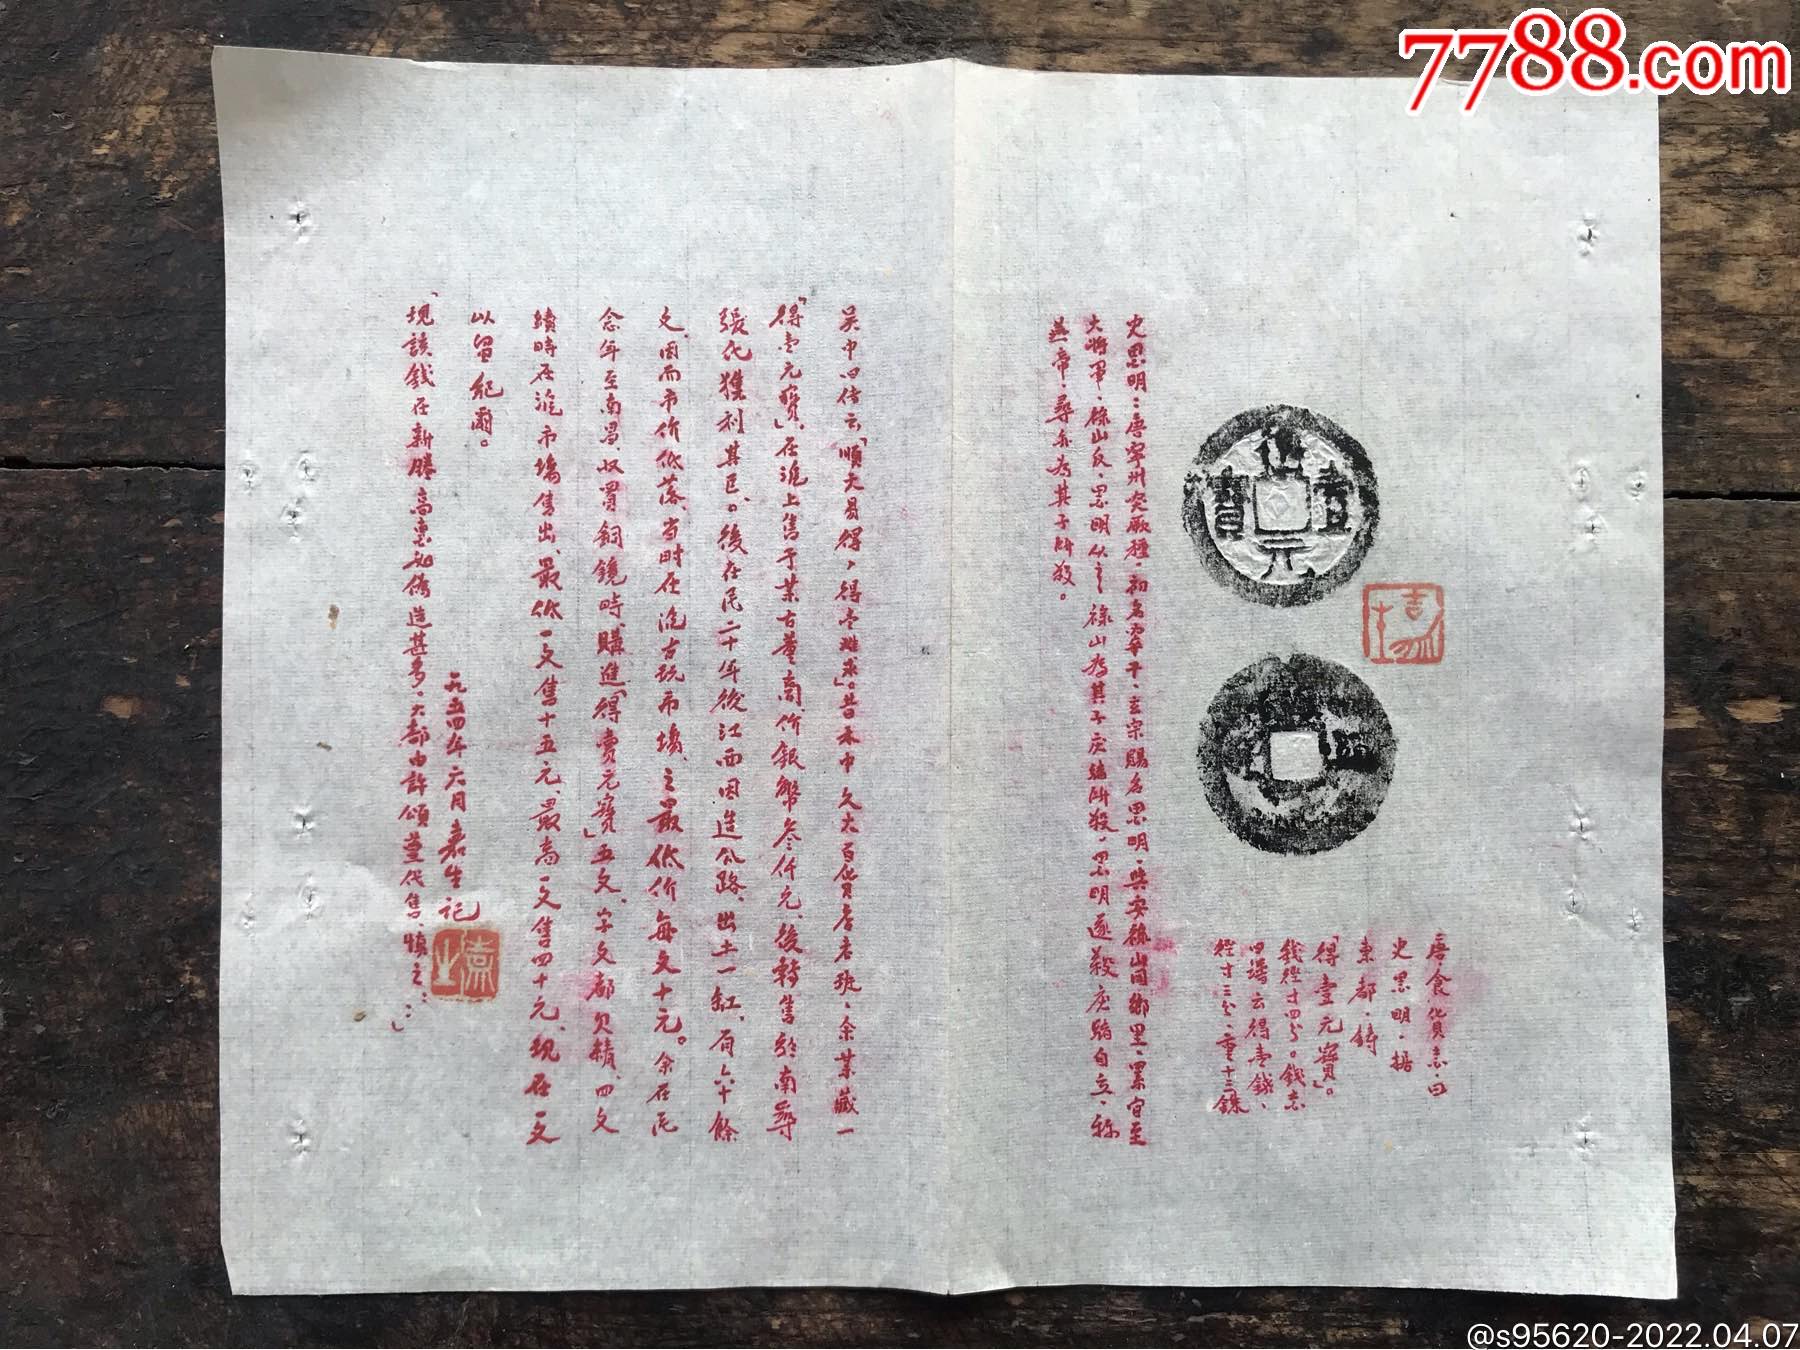 7788.com
得壹元寶
唐食貨志曰
史思明據
東都鑄
「得壹元寶」。
錢徑寸四分。錢志
曰譜云得壹錢、
徑寸三分、重十三銖
史思明：唐寧州突厥種，初名窣干、玄宗賜名思明，與安祿山同鄉里，累官至
大將軍，祿山反，思明從之祿山為其子慶緒所殺，思明遂殺慶緒自立，稱
燕帝，尋亦為其子所殺。
吳中口傳云「順天易得，得壹難求」。昔永中久大百貨店老班，余某藏一
「得壹元寶」在滬上售于某古董商價銀幣叁仟元、後轉售給南尋
張化獲利甚巨。後在民二十年後江西因造公路、出土一缸、有六十餘
文、因而市价低落、当时在滬古玩市場、之最低价每文十元。余在民
念年至南昌、收買銅鏡時、購進「得壹元寶」五文、字文都欠精、四文
續時在滬市場售出、最低一文售十五元、最高一文售四十元、現在一文
以留紀爾。
「現該錢在新勝高意知偽造甚多。大都由許頌董代售、慎之：：」
一九五四年六月嘉生記
@s95620-2022.04.07